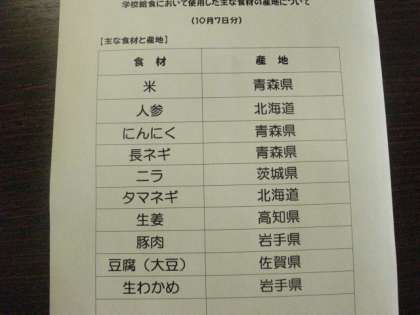 学校給食において使用した主な食材の産地について
（10月7日分）
【主な食材と産地】
食 材 産 地
米 青森県
人参 北海道
にんにく 青森県
長ネギ 青森県
ニラ 茨城県
タマネギ 北海道
生姜 高知県
豚肉 岩手県
豆腐（大豆） 佐賀県
生わかめ 岩手県